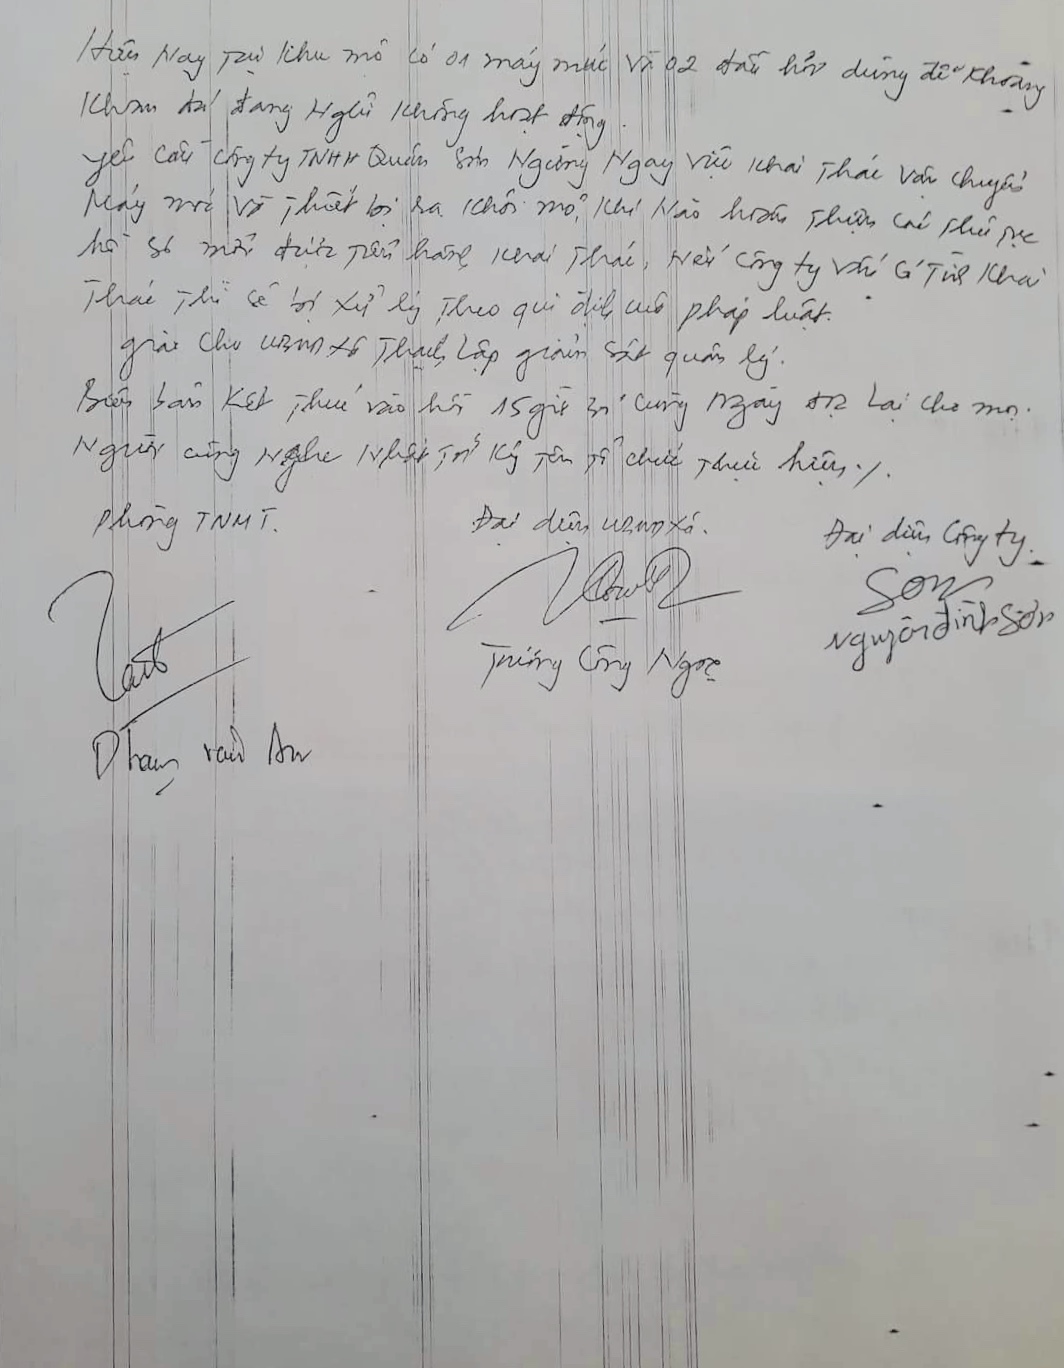 Hiện Nay Tại Khu mỏ có 01 máy múc và 02 đầu hơi dùng để Khoảng
Khoan đá đang Nghỉ Không hoạt động.
yêu cầu công ty TNHH Quân Sơn Ngừng Ngay việc Khai Thác vận chuyển
Máy móc và Thiết bị ra Khỏi mỏ, Khi Nào hoàn Thiện các thủ tục
hồ sơ mới được Tiến hành Khai Thác, Nếu Công ty vẫn cố Tình Khai
Thác Thì sẽ bị xử lý Theo qui định của pháp luật.
giao cho UBND xã Thạch Lập giám sát quản lý.
Biên bản Kết Thúc vào hồi 15 giờ 30' cùng Ngày đọc lại cho mọi
Người cùng Nghe Nhất Trí Ký Tên Tổ chức Thực hiện./.
Phòng TNMT. Đại diện UBND xã. Đại diện Công ty.
Sơn
Trương Công Ngọc Nguyễn Đình Sơn
Phạm Văn An